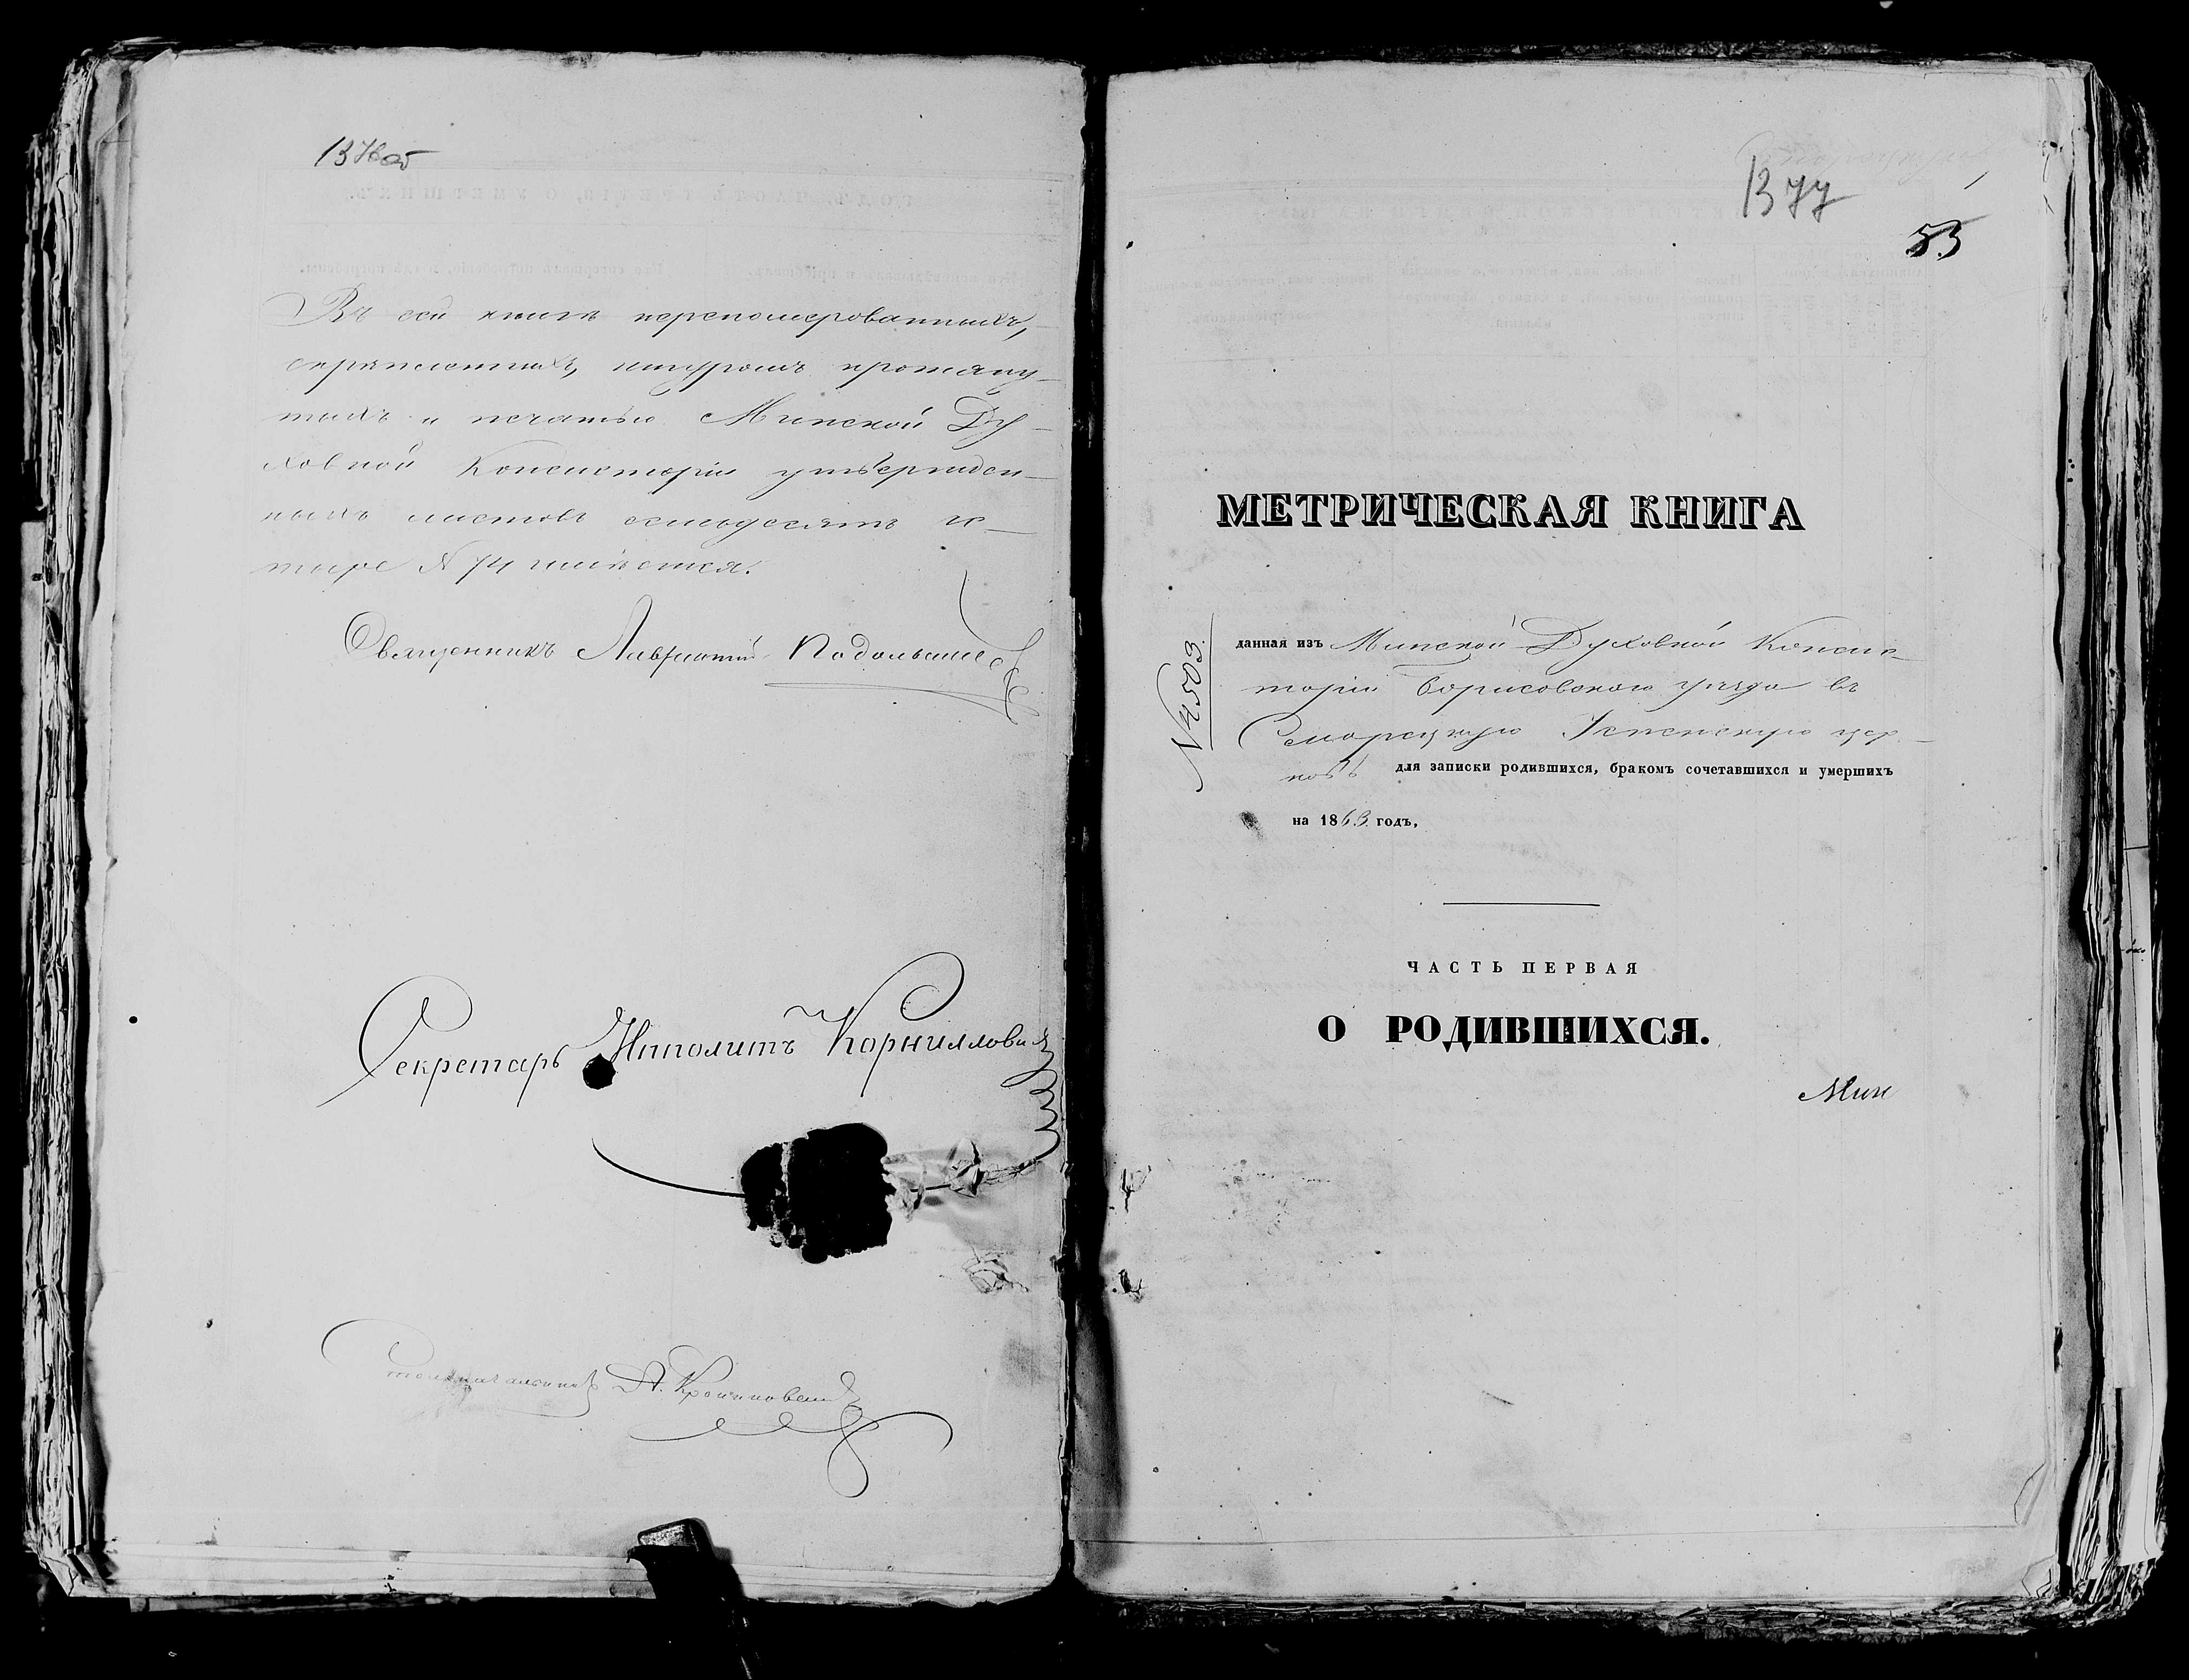 1376 об
Въ сей книгѣ перенумерованныхъ,
скрѣпленныхъ, шнуромъ протяну-
тыхъ и печатью Минской Ду-
ховной Консисторіи утвержден-
ныхъ листовъ семьдесятъ че-
тыре № 74 имѣется.
Священникъ Лаврентій
Секретарь Ипполитъ Корниловичъ
Столоначальникъ А.
1377
1
53
МЕТРИЧЕСКАЯ КНИГА
№ 4503.
данная изъ Минской Духовной Консис-
торіи Борисовскаго уѣзда въ
Успенскую цер-
ковь для записки родившихся, бракомъ сочетавшихся и умершихъ
на 1863 годъ,
ЧАСТЬ ПЕРВАЯ
О РОДИВШИХСЯ.
Мин